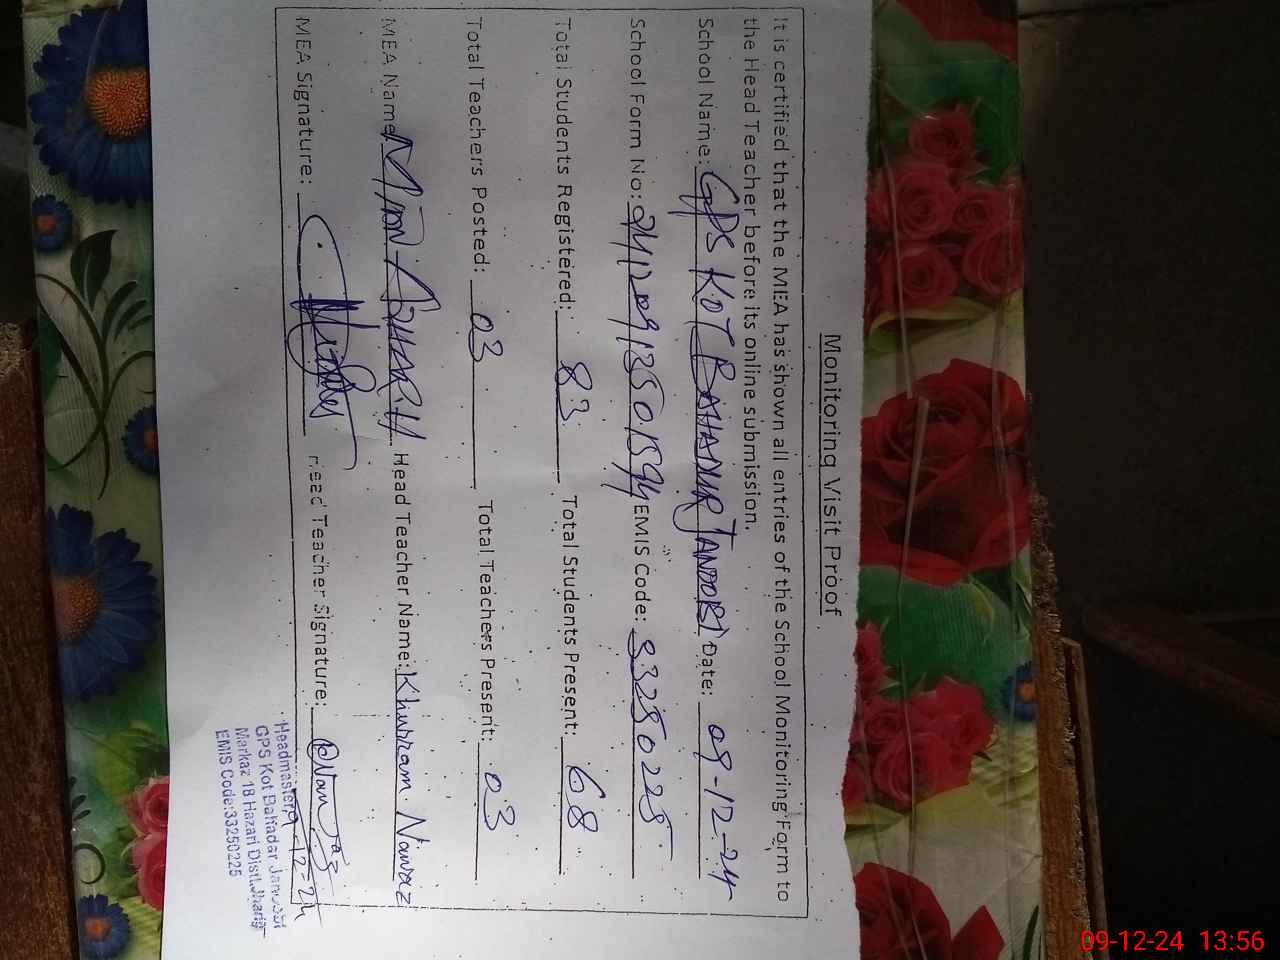 Monitoring Visit Proof
It is certified that the MEA has shown all entries of the School Monitoring Form to
the Head Teacher before its online submission.
School Name: GPS KOT BAHADUR JANOOBI Date: 09-12-24
School Form No: EMIS Code: 33250225
Total Students Registered: 83 Total Students Present: 68
Total Teachers Posted: 03 Total Teachers Present: 03
MEA Name Head Teacher Name: Khurram Nawaz
MEA Signature: Head Teacher Signature:
9-12-24
Headmaster
GPS Kot Bahadar Janoobi
Markaz 18 Hazari Distt.Jhang
EMIS Code:33250225
09-12-24 13:56